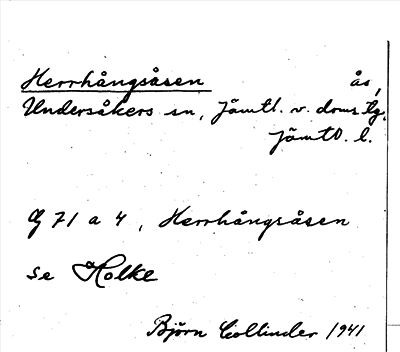 Herrhångsåsen ås,
Undersåkers sn, Jämtl. v. doms.tg,
Jämtl. l.
G 71 a 4, Herrhångsåsen
se Holke
Björn Collinder 1941